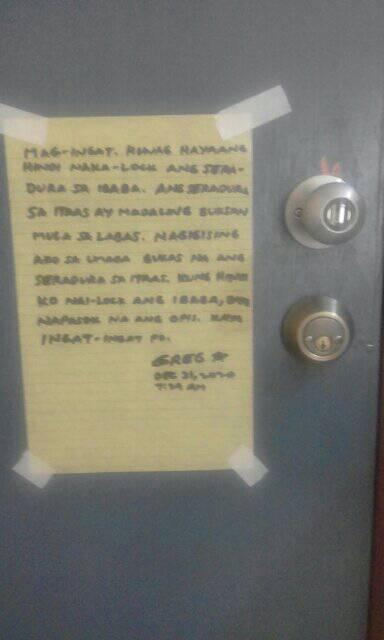 MAG-INGAT. HUWAG HAYAANG
HINDI NAKA-LOCK ANG SERA-
DURA SA IBABA. ANG SERADURA
SA ITAAS AY MADALING BUKSAN
MULA SA LABAS. NAGIGISING
AKO SA UMAGA BUKAS NA ANG
SERADURA SA ITAAS. KUNG HINDI
KO NAI-LOCK ANG IBABA,
NAPASOK NA ANG OPIS. KAYA
INGAT-INGAT PO.
GREG
DEC 31, 2020
7:39 AM